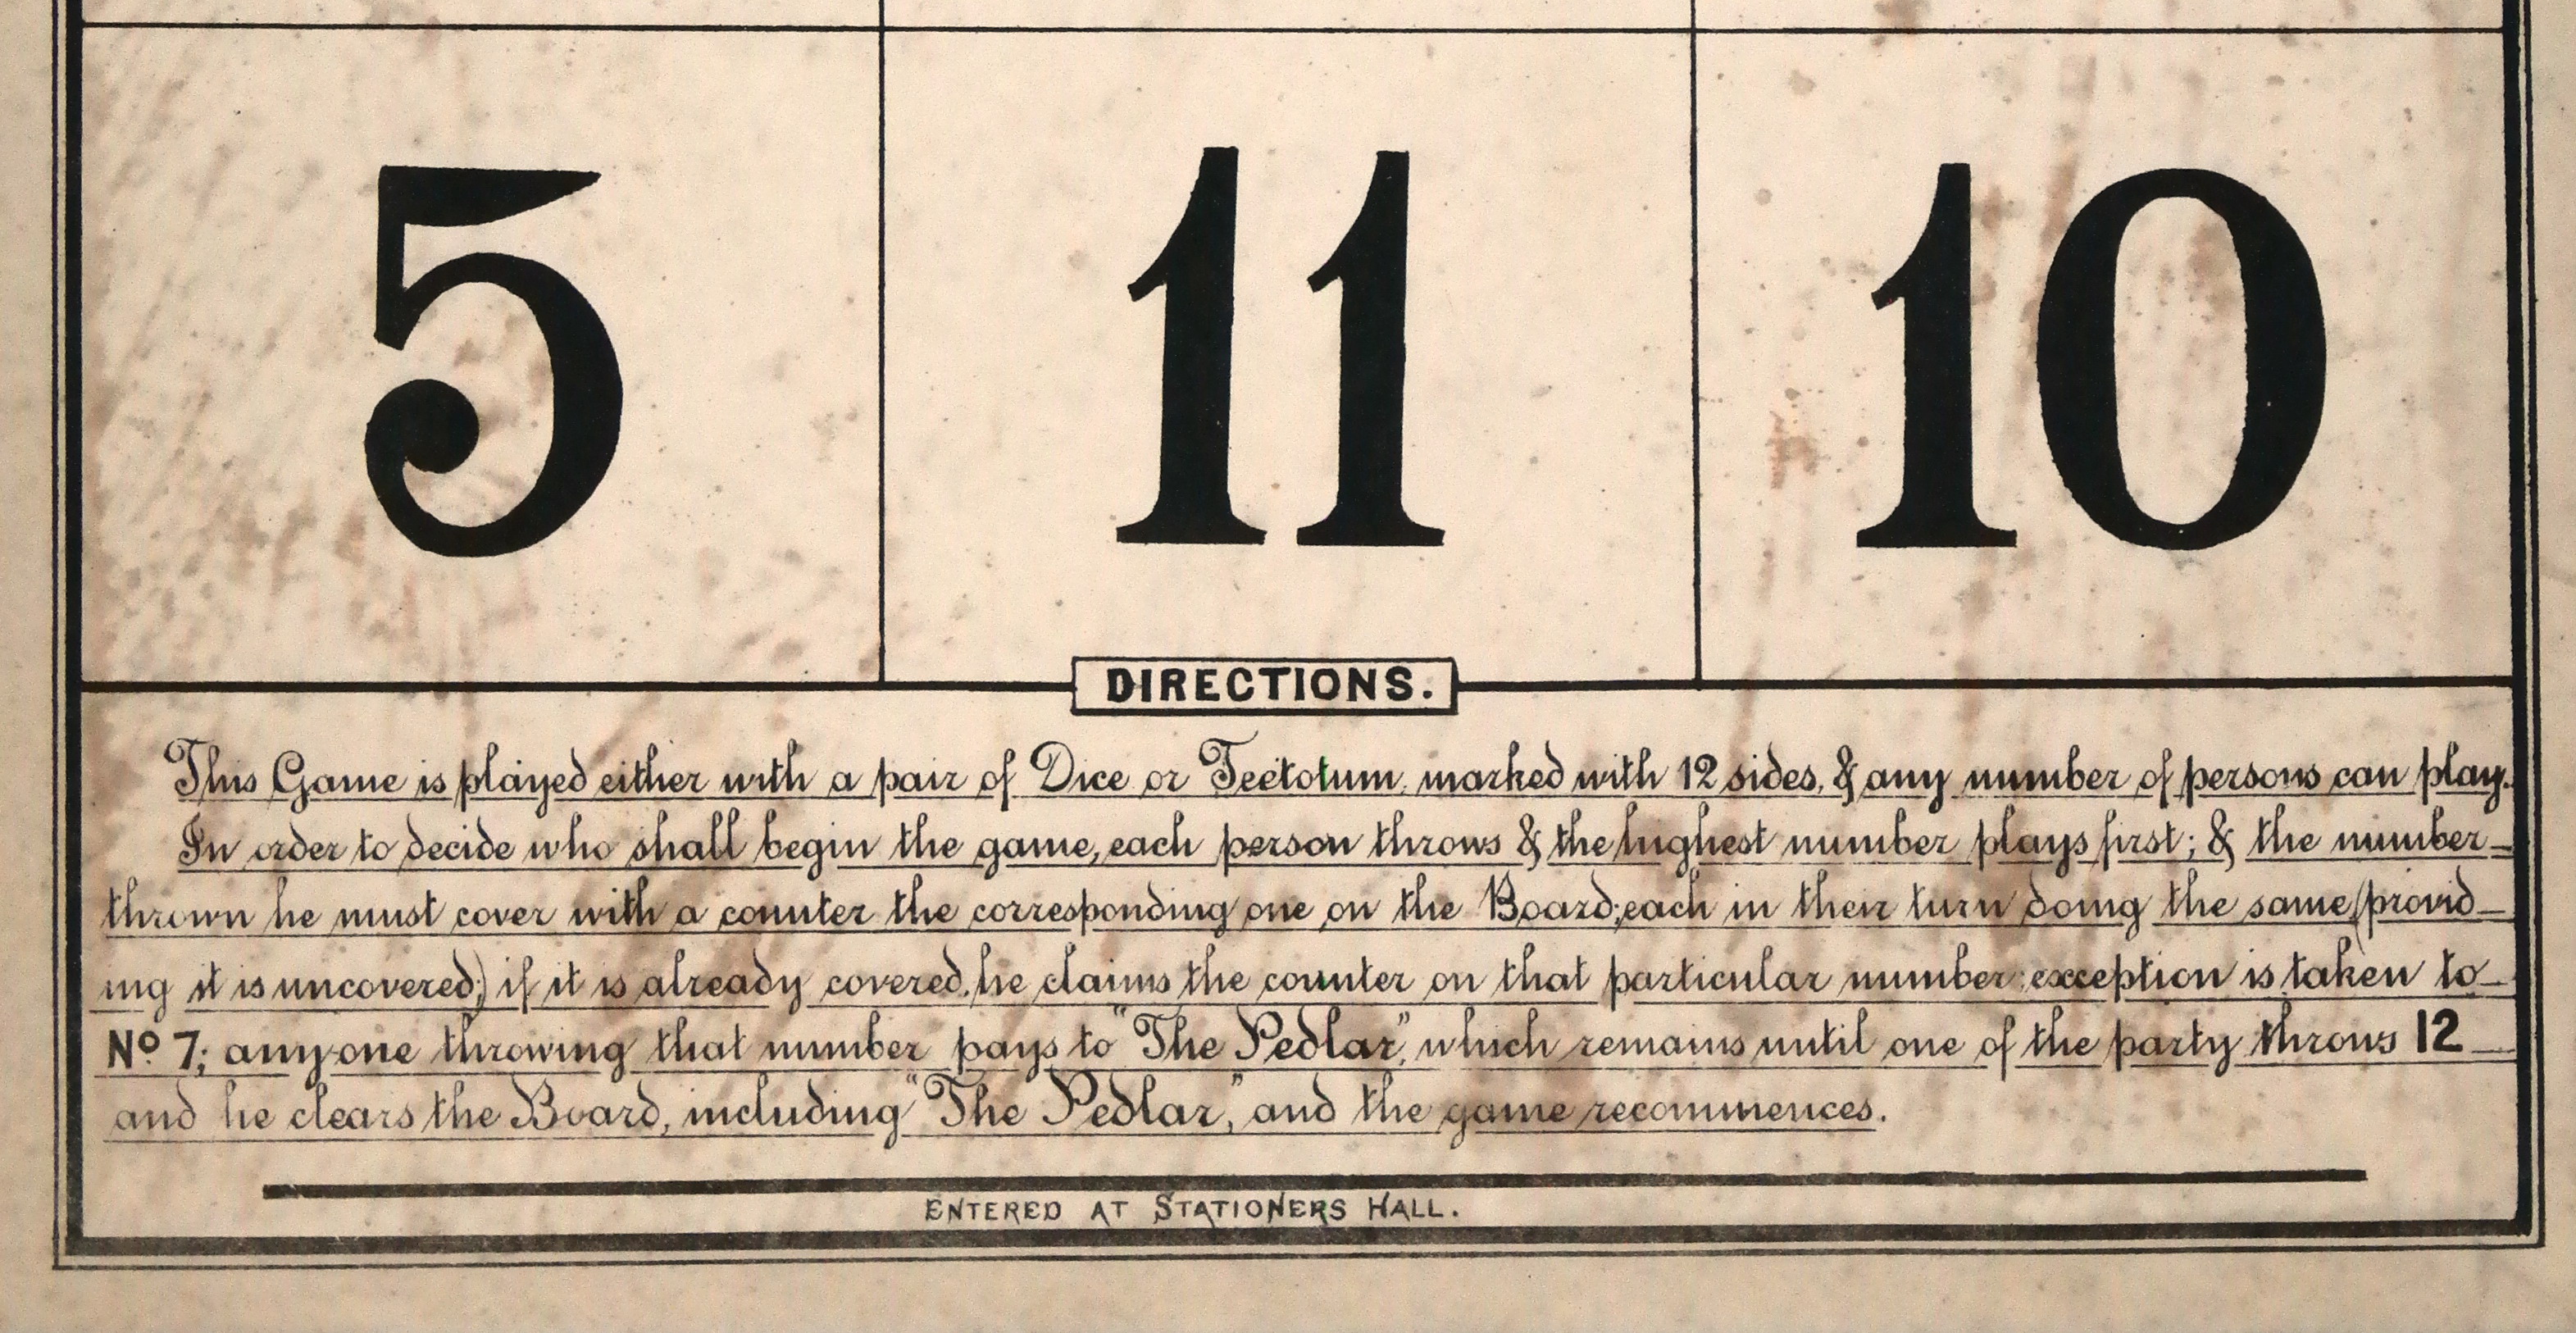 5 11 10
DIRECTIONS.
This Game is played either with a pair of Dice or Teetotum, marked with 12 sides, & any number of persons can play.
In order to decide who shall begin the game, each person throws & the highest number plays first; & the number
thrown he must cover with a counter the corresponding one on the Board; each in their turn doing the same (provid-
ing it is uncovered;) if it is already covered, he claims the counter on that particular number: exception is taken to
No. 7; anyone throwing that number pays to "The Pedlar", which remains until one of the party throws 12
and he clears the Board, including "The Pedlar," and the game recommences.
ENTERED AT STATIONERS HALL.